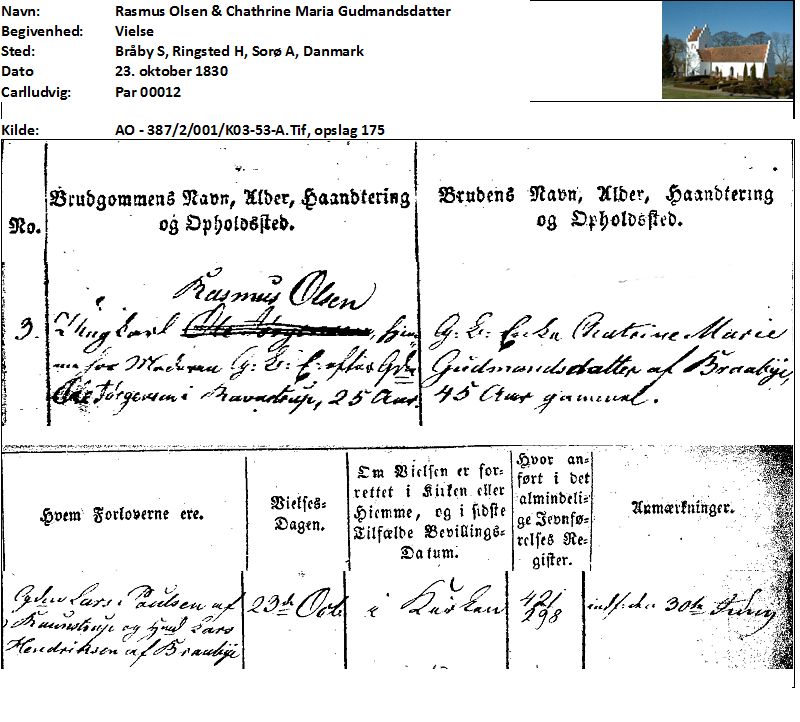 Navn: Rasmus Olsen & Chathrine Maria Gudmandsdatter
Begivenhed: Vielse
Sted: Bråby S, Ringsted H, Sorø A, Danmark
Dato 23. oktober 1830
Carlludvig: Par 00012
Kilde: AO - 387/2/001/K03-53-A.Tif, opslag 175
No.
Brudgommens Navn, Alder, Haandtering
og Opholdssted.
Brudens Navn, Alder, Haandtering
og Opholdssted.
Rasmus Olsen
3. Ungkarl
hos Moderen G: Ee: E: efter Gdm
Ole Jørgensen i Ravnstrup, 25 Aar.
G: Ee: Enke Chatrine Marie
Gudmandsdatter af Braabye,
45 Aar gammel.
Hvem Forloverne ere.
Vielses-
Dagen.
Om Vielsen er for-
rettet i Kirken eller
Hiemme, og i sidste
Tilfælde Bevillings-
Datum.
Hvor an-
ført i det
almindeli-
ge Jevnfø-
relses Re-
gister.
Anmærkninger.
Lars Poulsen af
Ravnstrup og Lars
Hendriksen af Braabye
23de Octb
i Kirken
42/298
30te Juny